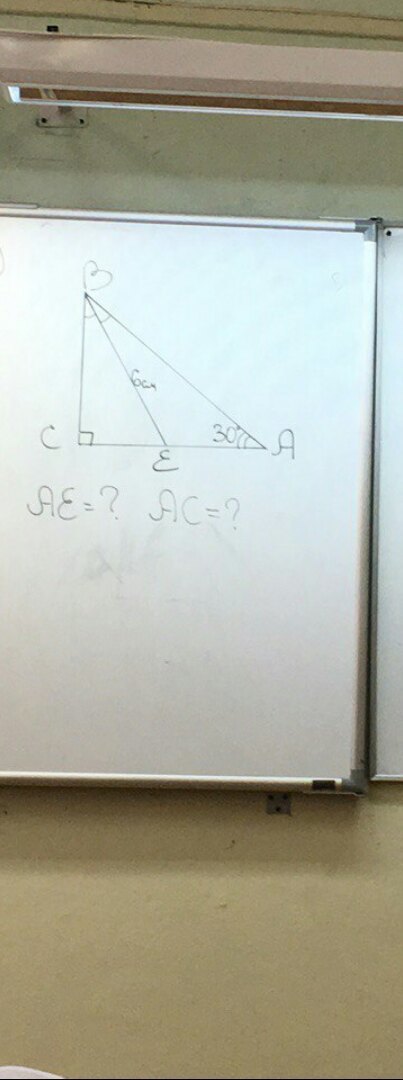 B
6см
C
30°
A
E
AE=? AC=?